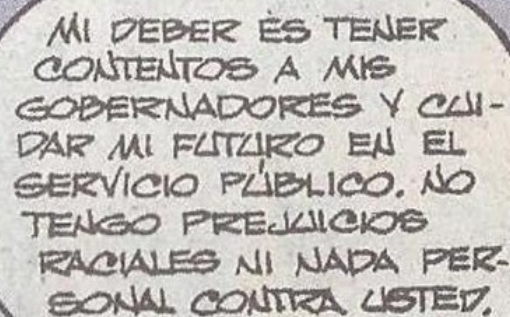 MI DEBER ES TENER
CONTENTOS A MIS
GOBERNADORES Y CUI-
DAR MI FUTURO EN EL
SERVICIO PÚBLICO. NO
TENGO PREJUICIOS
RACIALES NI NADA PER-
SONAL CONTRA USTED.